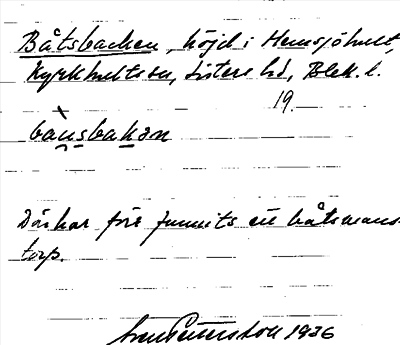 Båtsbacken, höjd i Hemsjöhult,
Kyrkhults sn, Listers hd, Blek. l.
19.
bȧu̯sbakən
Där har förr funnits ett båtsmans-
torp.
Sven Pettersson 1936